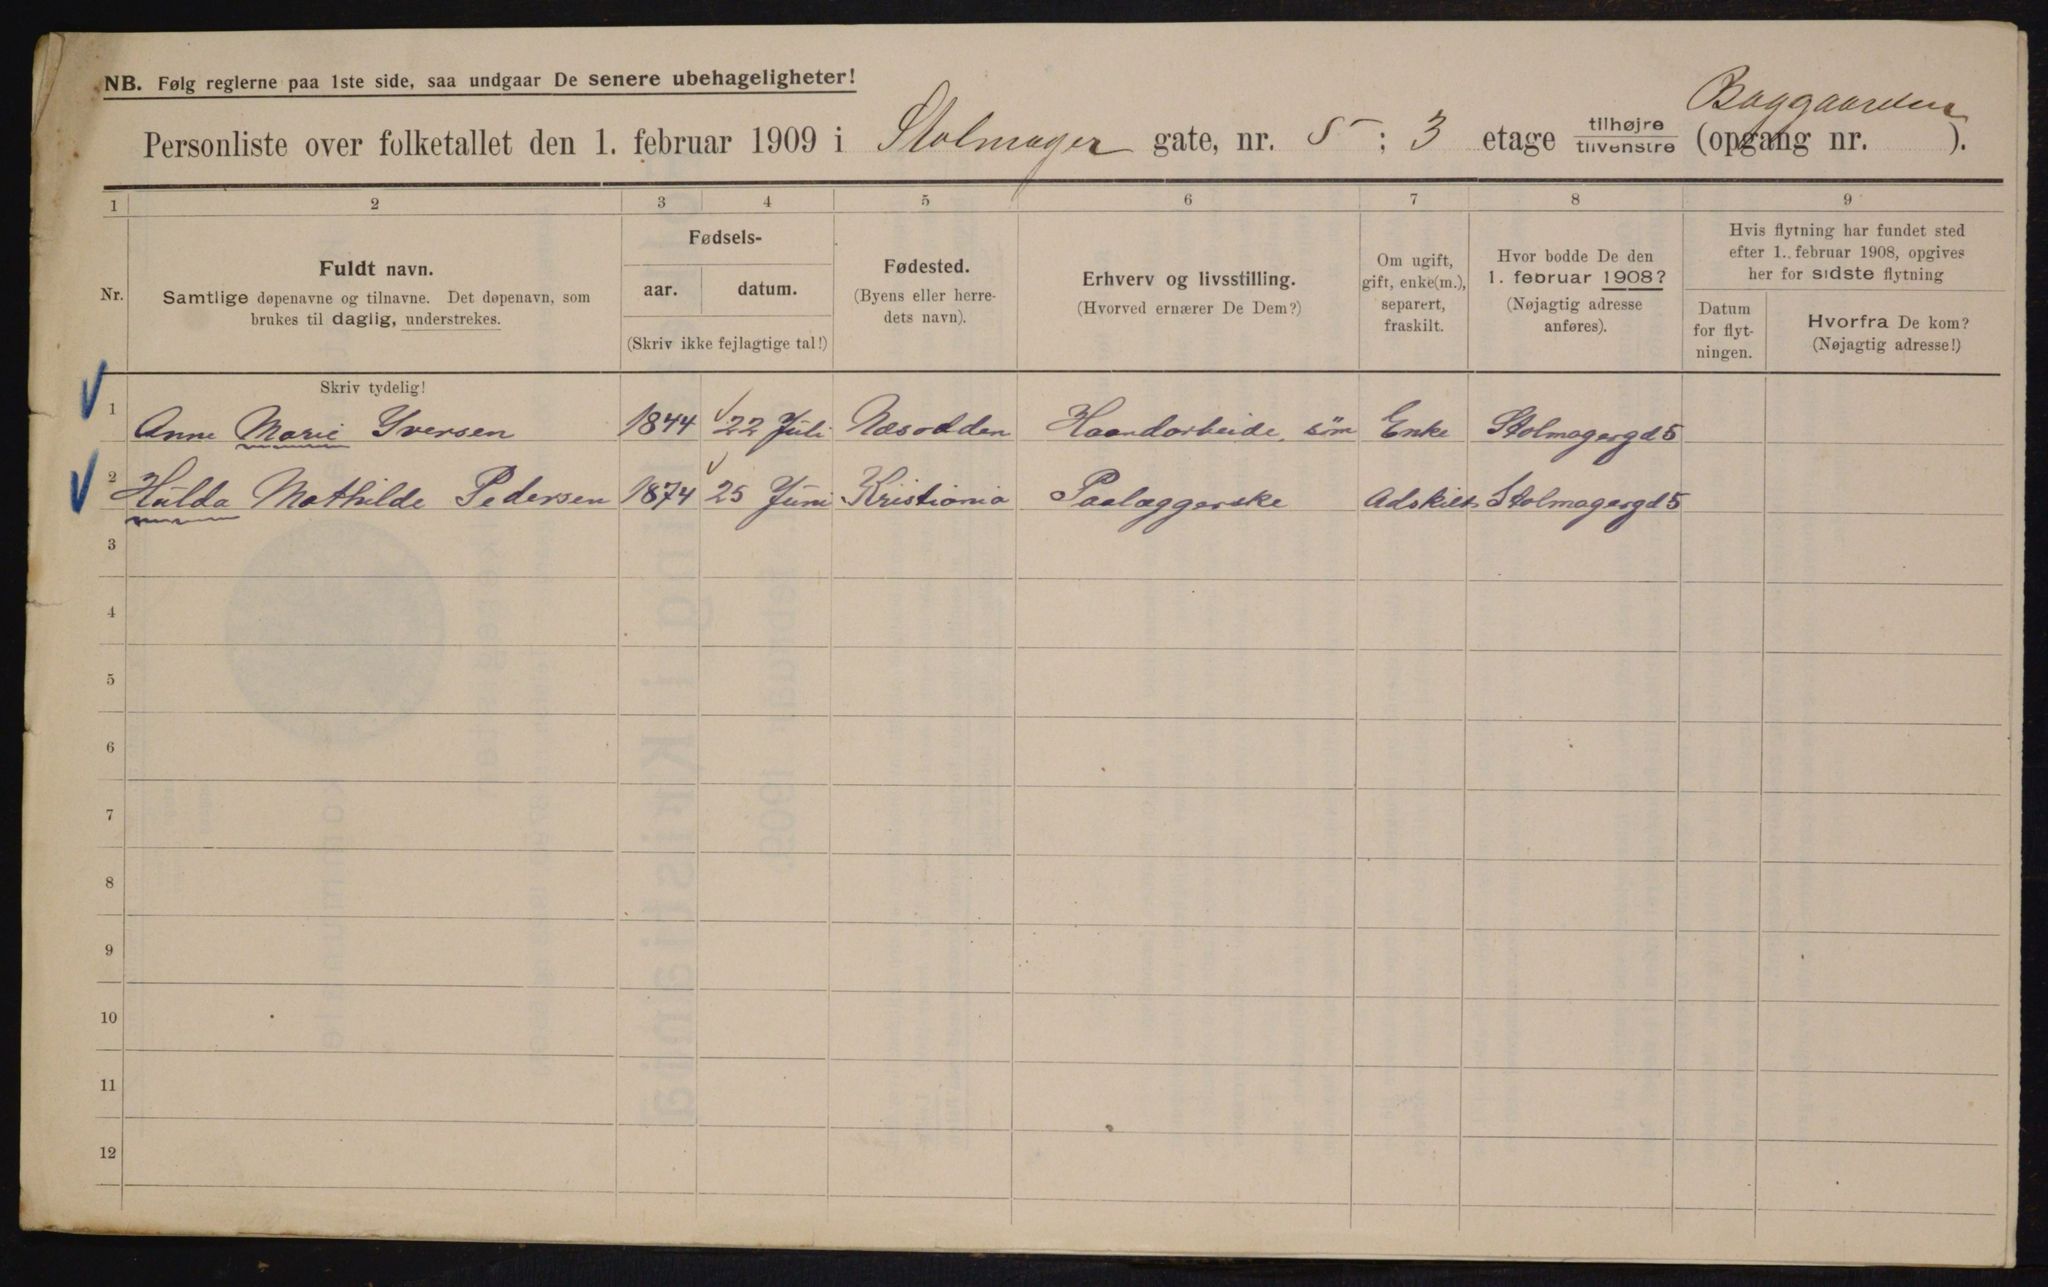 NB. Følg reglerne paa 1ste side, saa undgaar De senere ubehageligheter!
Baggaarden
Personliste over folketallet den 1. februar 1909 i Stolmager gate, nr. 5 ; 3 etage tilhøjre tilvenstre (opgang nr. ).
1 2 3 4 5 6 7 8 9
Nr.
Fuldt navn.
Samtlige døpenavne og tilnavne. Det døpenavn, som
brukes til daglig, understrekes.
Fødsels-
aar. datum.
(Skriv ikke fejlagtige tal!)
Fødested.
(Byens eller herre-
dets navn).
Erhverv og livsstilling.
(Hvorved ernærer De Dem?)
Om ugift,
gift, enke(m.),
separert,
fraskilt.
Hvor bodde De den
1. februar 1908?
(Nøjagtig adresse
anføres).
Hvis flytning har fundet sted
efter 1. februar 1908, opgives
her for sidste flytning
Datum
for flyt-
ningen.
Hvorfra De kom?
(Nøjagtig adresse!)
Skriv tydelig!
1 Anne Marie Iversen 1844 22 Juli Næsodden Haandarbeide, søm Enke Stolmagergd 5
2 Hulda Mathilde Pedersen 1874 25 Juni Kristiania Paalæggerske Adskilt Stolmagergd 5
3
4
5
6
7
8
9
10
11
12